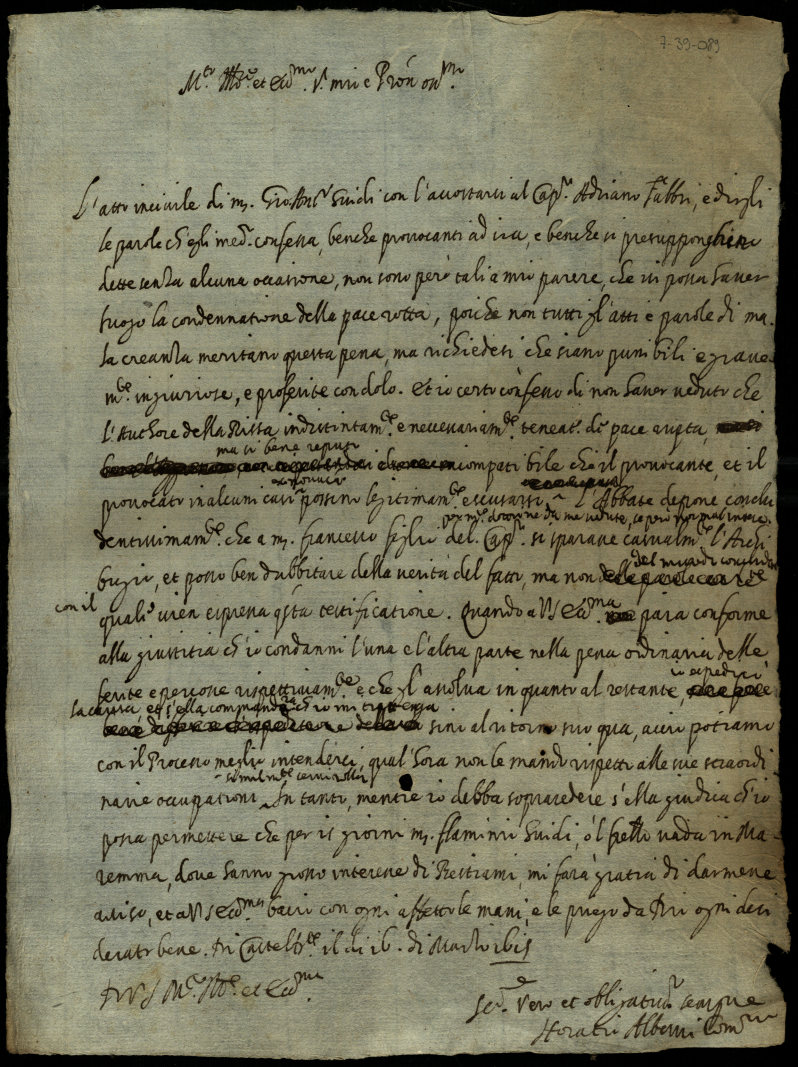 7-39-089
M.to Ill.re et Ecc.mo S.r mio e Pron oss.mo
L'atto incivile di m. Gio. Ant.o Guidi con l'accostarsi al Cap.o Adriano Fabbri, e dirgli
le parole ch'egli med.o confessa, benche provocanti ad ira, e benche si presupponghino
dette senza alcuna occasione, non sono però tali a mio parere, che ivi possa haver
luogo la condennatione della pace rotta, poiche non tutti gl'atti e parole di ma
la creanza meritano questa pena, ma richiedesi che siano punibili e grave
m.te ingiuriose, e proferite con dolo. Et io certo confesso di non haver veduto che
l'Authore della Rissa indistintam.te e necessariam.te teneat.r di pace rupta,
ma si bene reputo
incompatibile che il provocante, et il
provocato in alcuni casi possino legitimam.te scusarsi. L'Abbate depone conclu
dentissimam.te che a m. francesco figlio del Cap.o si sparasse casualm.te l'Archi
bugio, et posso ben dubbitare della verità del fatto, ma non del modo concludente
con il quale vien espressa q.sta testificatione. Quando a VS Ecc.ma paia conforme
alla giustitia ch'io condanni l'una e l'altra parte nella pena ordinaria delle
ferite e percosse rispettivam.te e che gl'assolva in quanto al restante, io espedirò
la causa, et s'ella comanderà ch'io mi trattenga
sino al ritorno suo qua, acciò potiamo
con il Processo meglio intenderci, qual'hora non le mando rispetto alle sue straordi
narie occupationi. In tanto, mentre io debba soprasedere s'ella giudica ch'io
possa permettere che per 15 giorni m. flaminio Guidi, ò 'l fratello vada in Ma
remma, dove hanno grosso interesse di Bestiami, mi farà gratia di darmene
aviso, et a VS Ecc.ma bacio con ogni affetto le mani, e le prego da Dio ogni desi
derato bene. Di Castel il di 16. di Marzo 1615
Di VS M.to Ill.re et Ecc.ma
Ser.re vero et obligatiss.o sempre
Horatio Alberti Com.rio